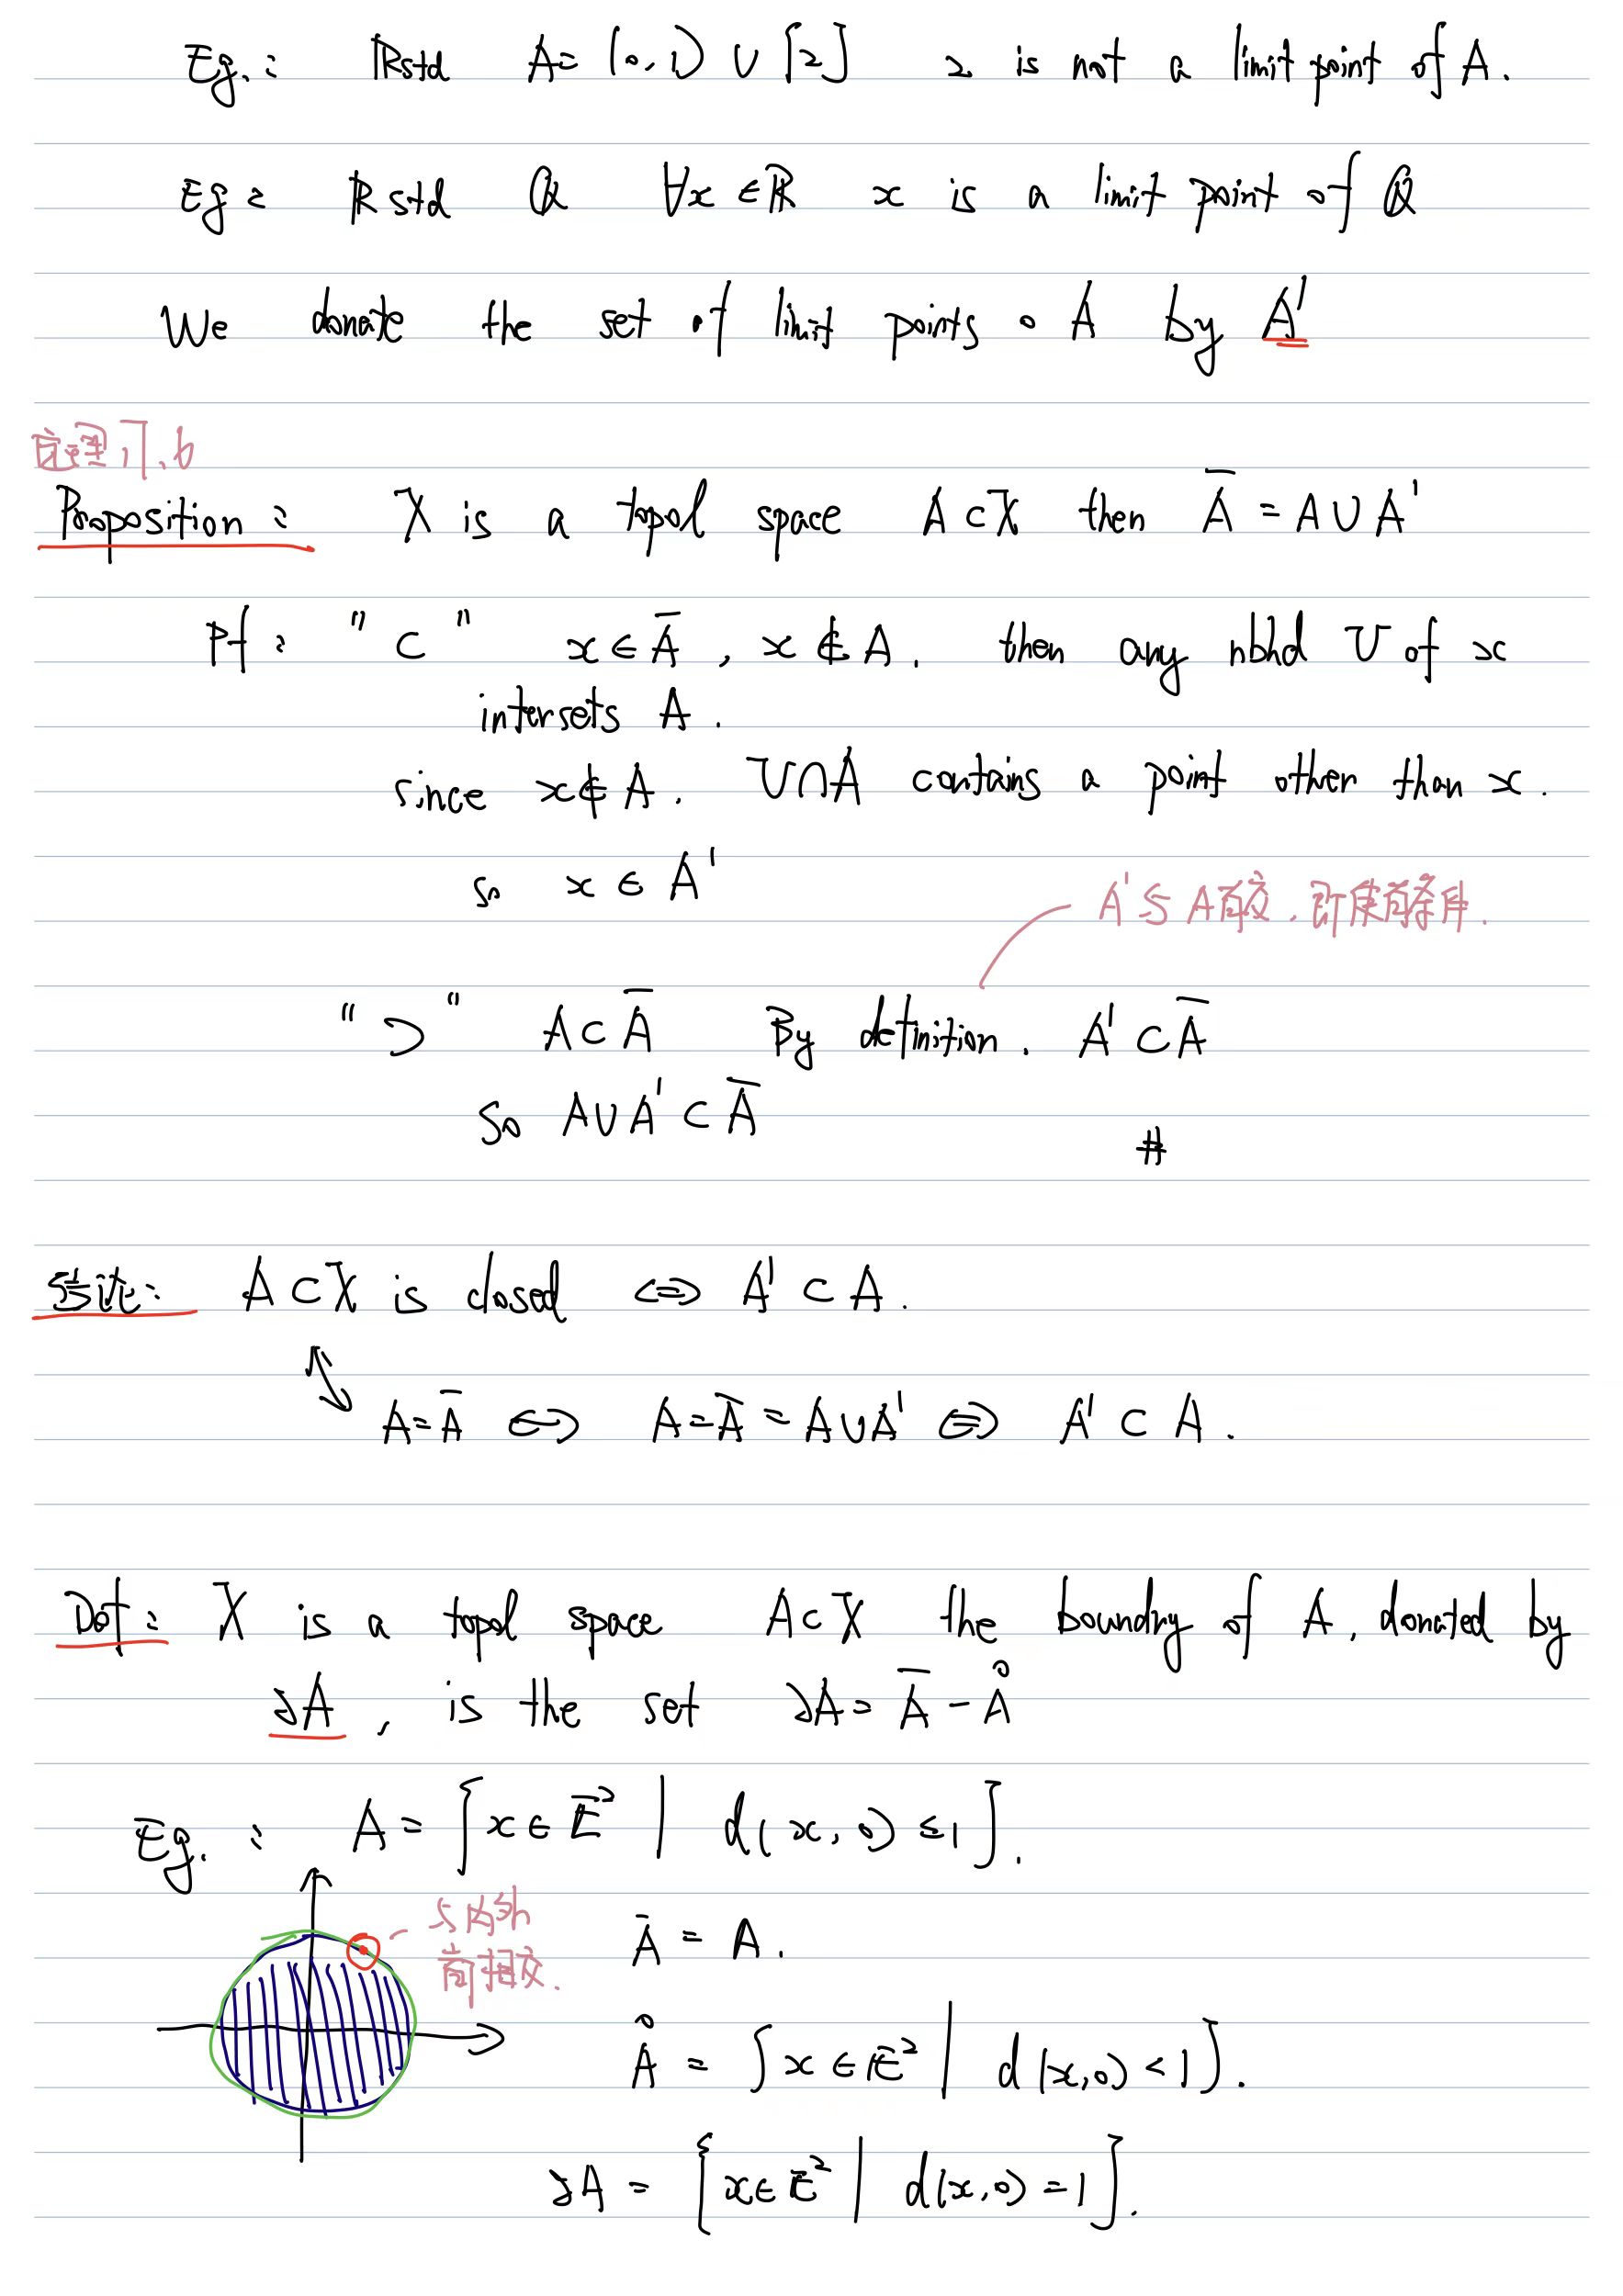 Eg.: ℝstd A = (0,1) ∪ {2} 2 is not a limit point of A.
Eg: ℝstd ℚ ∀x∈ℝ x is a limit point of ℚ
We donate the set of limit points o A by A'
定理17.6
Proposition: X is a topol space A⊂X then Ā = A∪A'
Pf: "⊂" x∈Ā, x∉A, then any nbhd U of x
intersets A.
since x∉A. U∩A contains a point other than x.
so x∈A'
A'与A有交,即使有条件.
"⊃" A⊂Ā By definition. A'⊂Ā
So A∪A'⊂Ā #
结论: A⊂X is closed ⇔ A'⊂A.
↕ A=Ā ⇔ A=Ā=A∪A' ⇔ A'⊂A.
Def: X is a topol space A⊂X the boundry of A, donated by
∂A, is the set ∂A = Ā - Å
Eg.: A = {x∈E² | d(x,0)≤1}.
与内外
Ā = A.
都相交.
Å = {x∈E² | d(x,0)<1}.
∂A = {x∈E² | d(x,0)=1}.